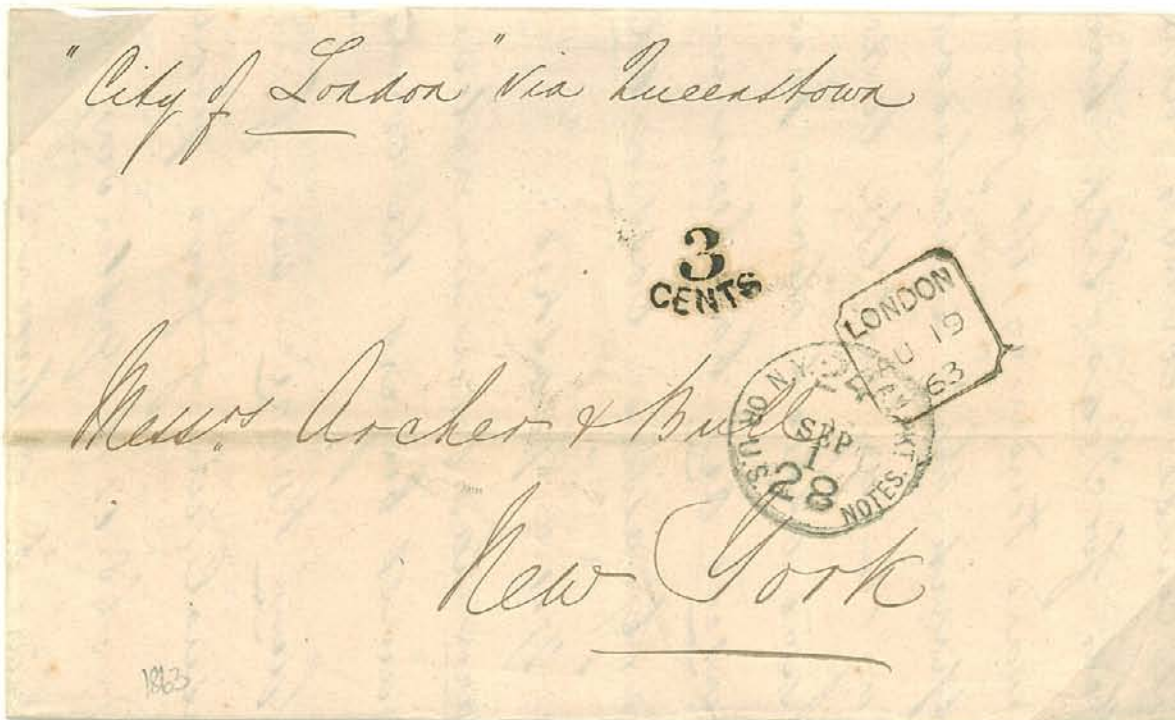 " City of London " Via Queenstown
3
CENTS
LONDON
AU 19
63
N.Y. 24 AM. PKT.
SEP
1
OR U.S. 28 NOTES.
Messrs. Archer & Bull
New York
1863